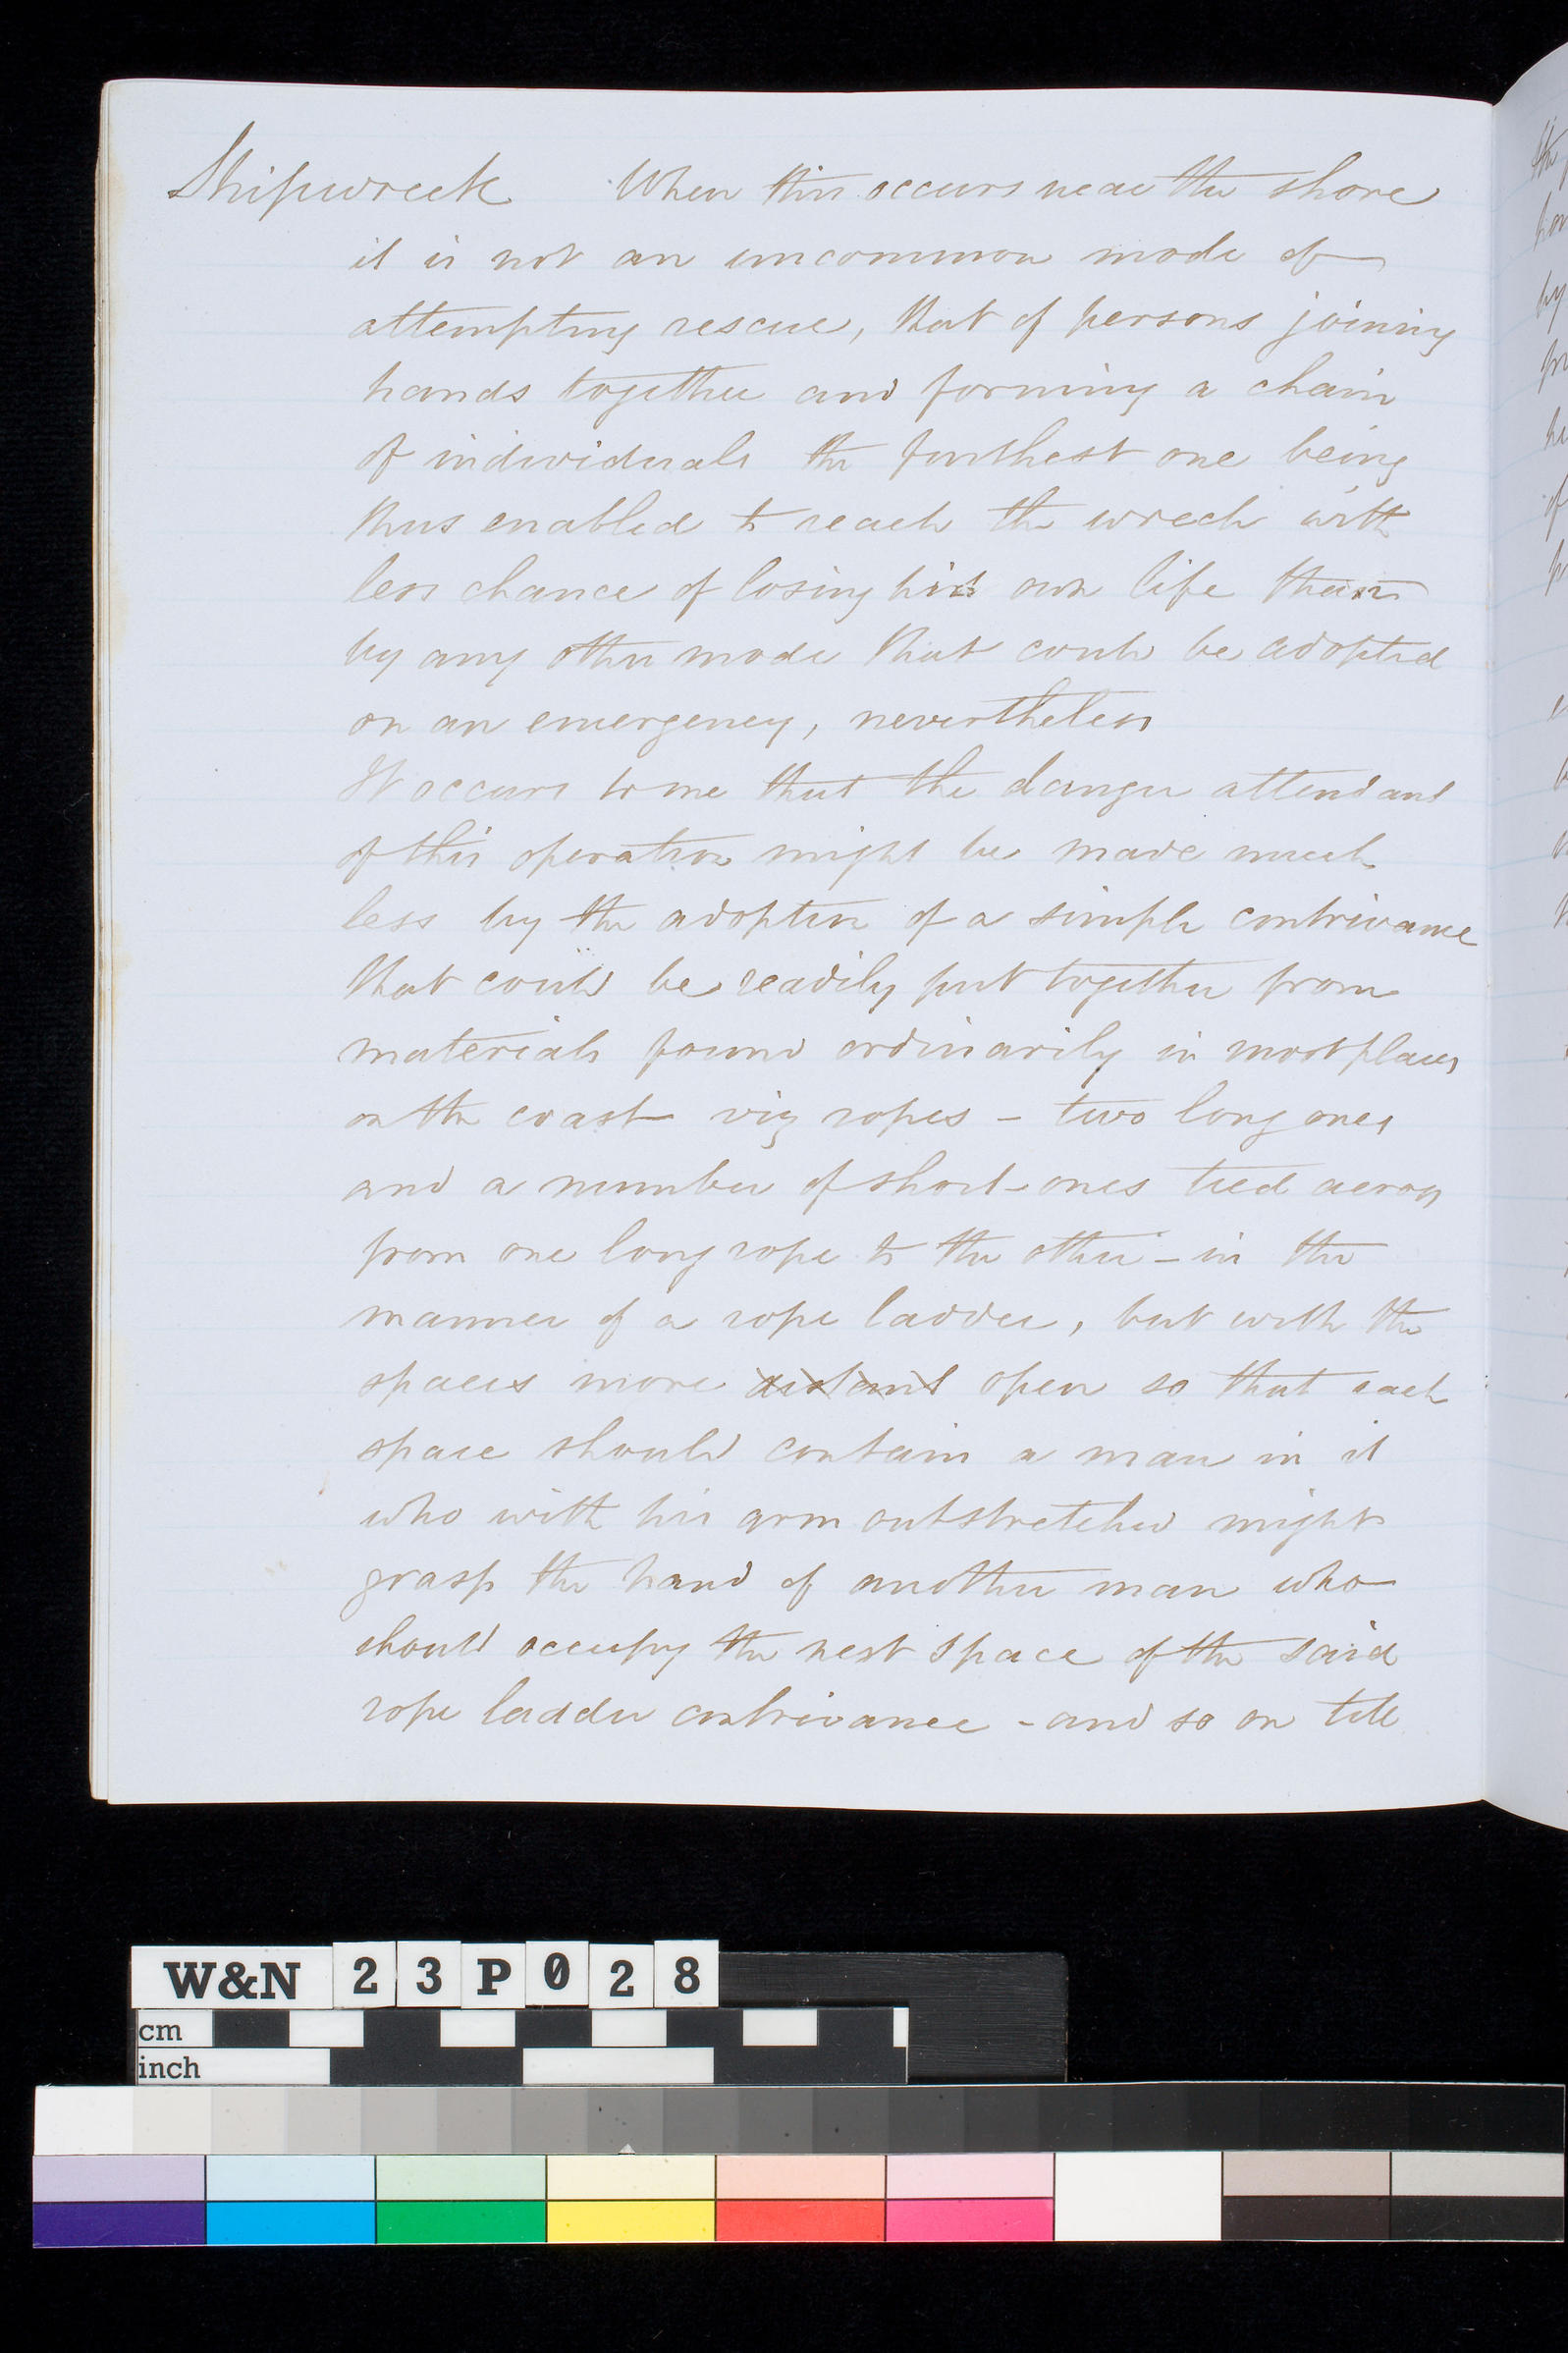 Shipwreck When this occurs near the shore
it is not an uncommon mode of
attempting rescue, that of persons joining
hands together and forming a chain
of individuals the furthest one being
thus enabled to reach the wreck with
less chance of losing his own life than
by any other mode that could be adopted
on an emergency, nevertheless
It occurs to me that the danger attendant
of this operation might be made much
less by the adoption of a simple contrivance
that could be readily put together from
materials found ordinarily in most places
on the coast viz ropes - two long ones
and a number of short ones tied across
from one long rope to the other - in the
manner of a rope ladder, but with the
spaces more distant open so that each
space should contain a man in it
who with his arm outstretched might
grasp the hand of another man who
should occupy the next space of the said
rope ladder contrivance - and so on till
W&N 23P028
cm
inch